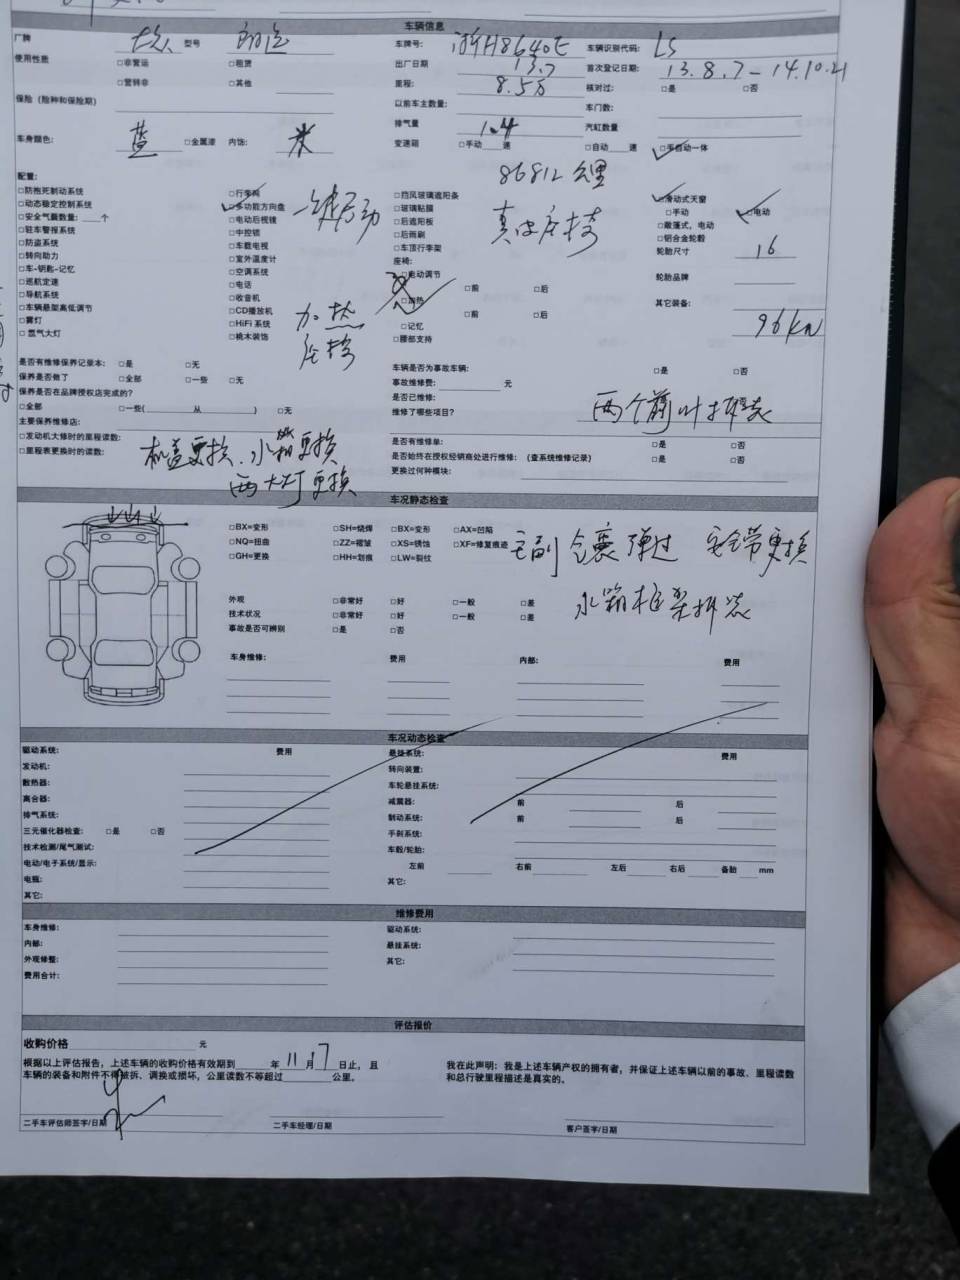 车辆信息
厂牌 大众 型号 朗逸 车牌号: 浙H8640E 车辆识别代码: LS
使用性质 □非营运 □租赁 出厂日期 13.7 首次登记日期: 13.8.7-14.10.21
□营转非 □其他 里程: 8.5万 核对过: □是 □否
保险（险种和保险期） 以前车主数量: 车门数:
排气量 1.4 汽缸数量
车身颜色: 蓝 □金属漆 内饰: 米 变速箱 □手动 速 □自动 速 □手自动一体
86812公里
配置:
□防抱死制动系统 □行李网 □挡风玻璃遮阳条 □滑动式天窗
□动态稳定控制系统 □多功能方向盘 一键启动 □玻璃贴膜 真皮座椅 □手动 □电动
□安全气囊数量: 个 □电动后视镜 □后遮阳板 □敞篷式，电动
□驻车警报系统 □中控锁 □后雨刷 □铝合金轮毂
□防盗系统 □车载电视 □车顶行李架 轮胎尺寸 16
□转向助力 □室外温度计 座椅:
□车-钥匙-记忆 □空调系统 □电动调节 轮胎品牌
□巡航定速 □电话 □前 □后
□导航系统 □收音机 □加热 其它装备:
□车辆悬架高低调节 □CD播放机 加热 □前 □后
□雾灯 □HiFi 系统 座椅 □记忆 96kn
□氙气大灯 □桃木装饰 □腰部支持
是否有维修保养记录本: □是 □无 车辆是否为事故车辆: □是 □否
保养是否做了 □全部 □一些 □无 事故维修费: 元
保养是否在品牌授权店完成的? 是否已维修:
□全部 □一些( 从 ) □无 维修了哪些项目? 两个前叶拆装
主要保养维修店:
□发动机大修时的里程读数: 是否有维修单: □是 □否
□里程表更换时的读数: 机盖更换、水箱更换 是否始终在授权经销商处进行维修: （查系统维修记录） □是 □否
两大灯更换 更换过何种模块:
车况静态检查
□BX=变形 □SH=烧焊 □BX=变形 □AX=凹陷
□NQ=扭曲 □ZZ=褶皱 □XS=锈蚀 □XF=修复痕迹 主副气囊弹过 安全带更换
□GH=更换 □HH=划痕 □LW=裂纹
外观 □非常好 □好 □一般 □差 水箱框架拆装
技术状况 □非常好 □好 □一般 □差
事故是否可辨别 □是 □否
车身维修: 费用 内部: 费用
车况动态检查
驱动系统: 费用 悬挂系统: 费用
发动机: 转向装置:
散热器: 车轮悬挂系统:
离合器: 减震器: 前 后
排气系统: 制动系统: 前 后
三元催化器检查: □是 □否 手刹系统:
技术检测/尾气测试: 车毂/轮胎:
电动/电子系统/显示: 左前 右前 左后 右后 备胎 mm
电瓶: 其它:
其它:
维修费用
车身维修: 驱动系统:
内部: 悬挂系统:
外观修整: 其它:
费用合计:
评估报价
收购价格 元
根据以上评估报告，上述车辆的收购价格有效期到 年11月17日止，且 我在此声明：我是上述车辆产权的拥有者，并保证上述车辆以前的事故、里程读数
车辆的装备和附件不得被拆、调换或损坏，公里读数不等超过 公里。 和总行驶里程描述是真实的。
二手车评估师签字/日期 二手车经理/日期 客户签字/日期